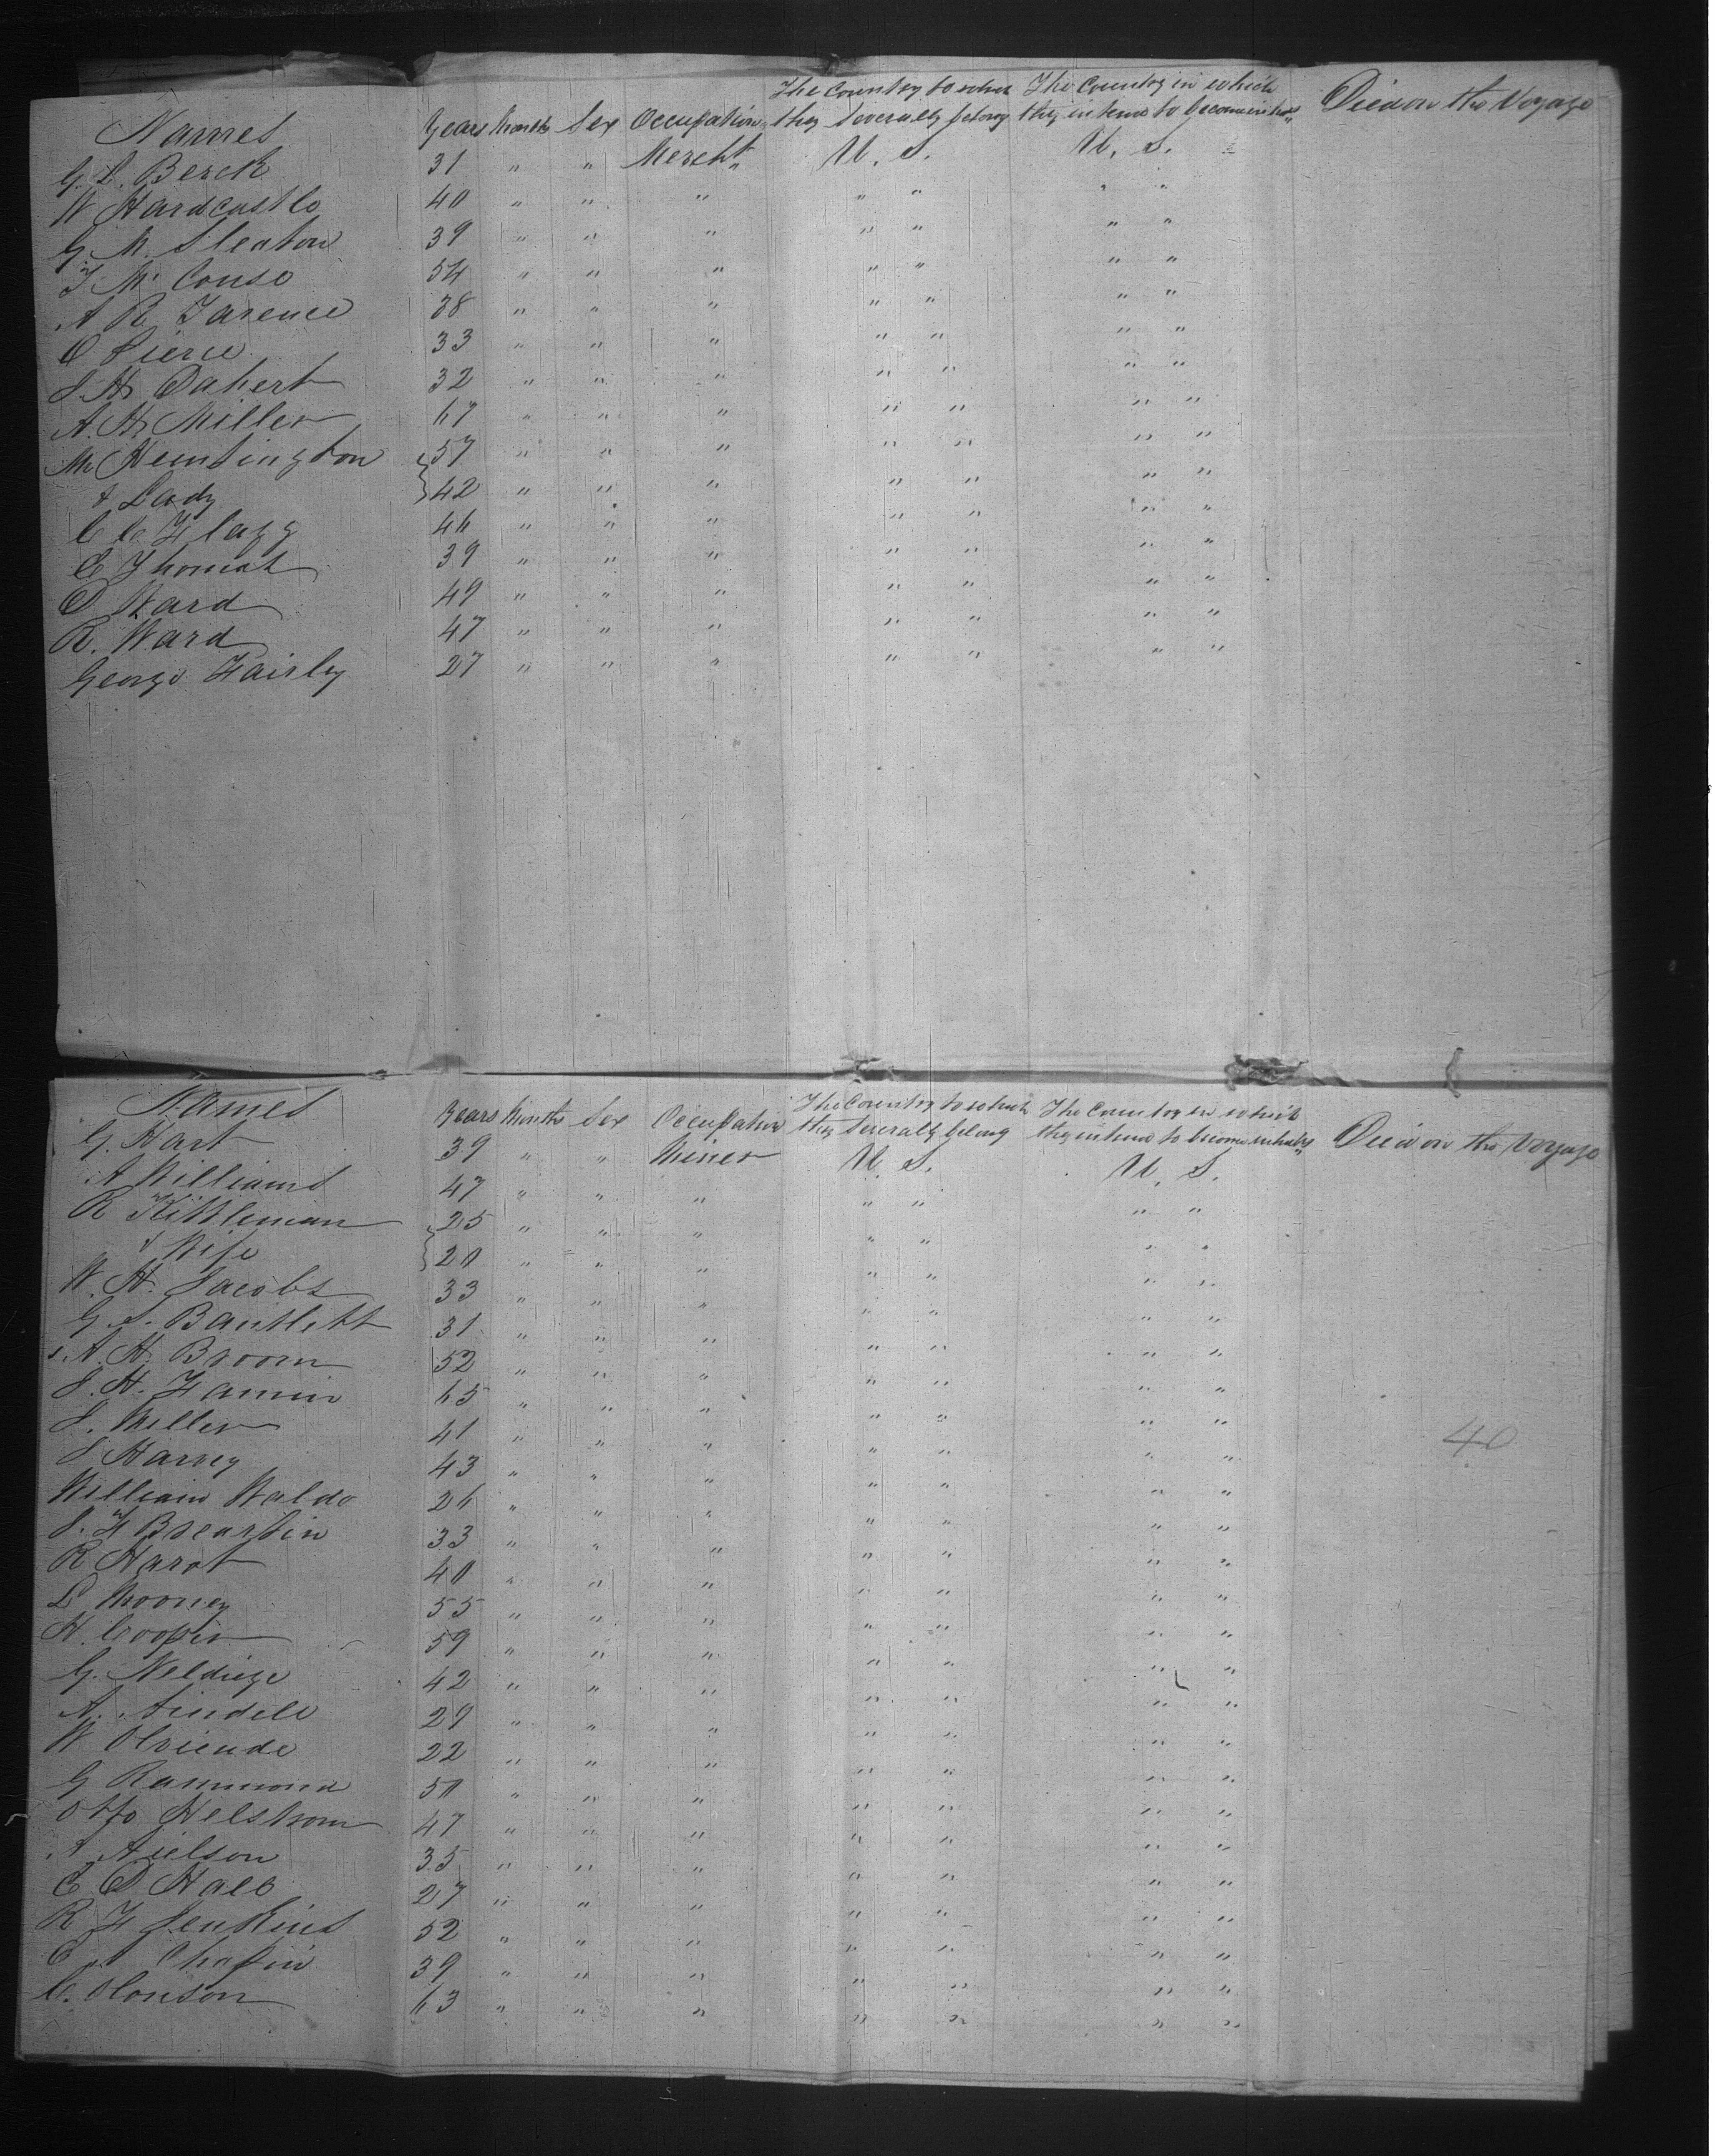 Names Years Months Sex Occupation The Country to which they severally belong The Country in which they intend to become inhabs Died on the Voyage
G. L. Berck 31 " " Mercht U. S. U. S.
W Hardcastle 40 " " " " " " "
G. M. Sleaton 39 " " " " " " "
54 " " " " " " "
A R Tarence 38 " " " " " " "
O Pierce 33 " " " " " " "
J. H. Dahert 32 " " " " " " "
A. H. Miller 67 " " " " " " "
Mr Huntington 57 " " " " " " "
& Lady 42 " " " " " " "
C C Flagg 46 " " " " " " "
C Thomas 39 " " " " " " "
O Ward 49 " " " " " " "
R. Ward 47 " " " " " " "
George Fairley 27 " " " " " " "
Names Years Months Sex Occupation The Country to which they severally belong The Country in which they intend to become inhabs Died on the Voyage
G. Hart 39 " " Miner U. S. U. S.
A Williams 47 " " " " " " "
R Kittleman 25 " " " " " " "
& Wife 20 " " " " " " "
W. H. Jacobs 33 " " " " " " "
G. S. Bartlett 31 " " " " " " "
A. H. Broom 52 " " " " " " "
J. H. 65 " " " " " " "
J. Miller 41 " " " " " " "
J Harvey 43 " " " " " " "
William Waldo 26 " " " " " " "
J. F 33 " " " " " " "
R Harot 40 " " " " " " "
L Mooney 55 " " " " " " "
H. Cooper 59 " " " " " " "
G. 42 " " " " " " "
A. 29 " " " " " " "
W 22 " " " " " " "
G Rammond 50 " " " " " " "
Otto Helstrom 47 " " " " " " "
A Nielson 35 " " " " " " "
C D Hall 27 " " " " " " "
R F Jenkins 52 " " " " " " "
Chapin 39 " " " " " " "
C. Olonson 63 " " " " " " "
40